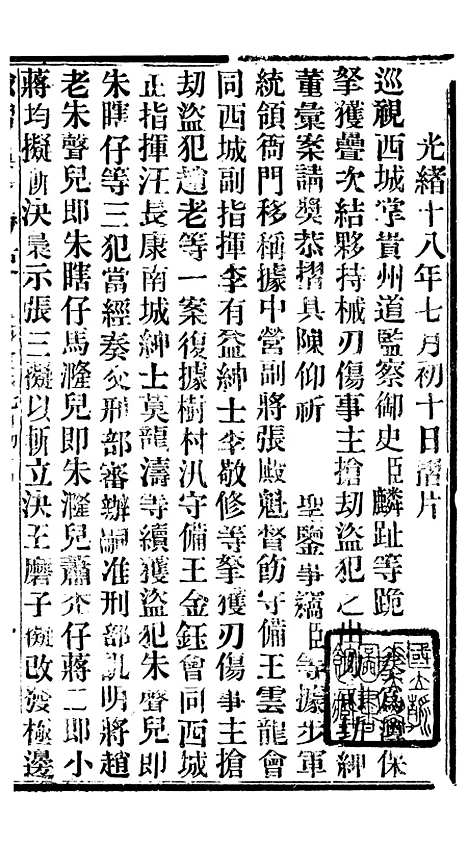 光緒十八年七月初十日摺片
巡視西城掌貴州道監察御史臣麟趾等跪 奏爲 保
拏獲疊次結夥持械刃傷事主搶劫盜犯之出力 紳
董彙案請獎恭摺具陳仰祈 聖鑒事竊臣等據步軍
統領衙門移稱據中營副將張殿魁督飭守備王雲龍會
同西城副指揮李有益紳士李敬修等拏獲刃傷事主搶
劫盜犯趙老等一案復據樹村汛守備王金鈺會同西城
正指揮汪長康南城紳士莫龍濤等續獲盜犯朱聲兒即
朱瞎仔等三犯當經奏交刑部審辦嗣准刑部訊明將趙
老朱聲兒即朱瞎仔馬濰兒即朱濰兒蕭 仔蔣二即小
蔣均擬斬決梟示張三擬以斬立決王磨子擬改發極邊